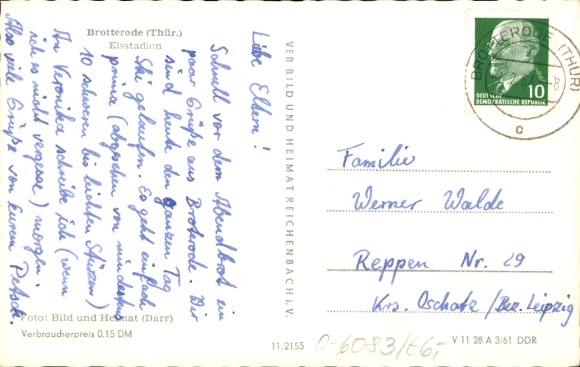 Brotterode (Thür.)
Eisstadion
Liebe Eltern!
Schnell vor dem Abendbrot ein
paar Grüße aus Broterode. Wir
sind heute den ganzen Tag
Ski gelaufen. Es geht einfach
prima (abgesehen von mindestens
10 schweren bis leichten Stürzen)
An Veronika schreibe ich (wenn
ich es nicht vergesse) morgen.
Also viele Grüße von eurem Petsch.
Foto: Bild und Heimat (Darr)
Verbraucherpreis 0.15 DM
VEB BILD UND HEIMAT REICHENBACH i. V.
11,2155
BROTTERODE (THÜR)
c
DEUTSCHE
DEMOKRATISCHE REPUBLIK
10
Familie
Werner Walde
Reppen Nr. 29
Krs. Oschatz / Bez. Leipzig
0-6083/t6,-
V 11 28 A 3/61 DDR